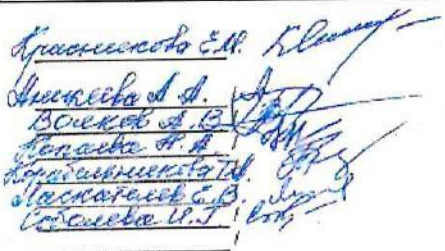 Красникова Е.М.
Аникеева А А.
Волков А. В
Копаева Н. А.
Корабельникова Т.И.
Ласкателев Е. В.
Соболева И.Г.